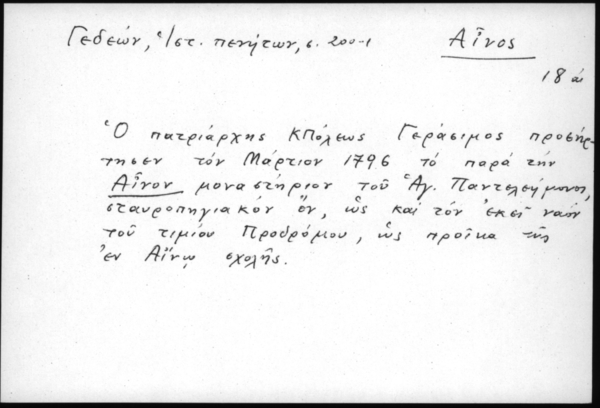 Γεδεών, Ἱστ. πενήτων, σ. 200-1
Αἶνος
18 αἰ
Ὁ πατριάρχης ΚΠόλεως Γεράσιμος προσήρ-
τησεν τόν Μάρτιον 1796 τό παρά τήν
Αἶνον μοναστήριον τοῦ Ἁγ. Παντελεήμονος,
σταυροπηγιακόν ὄν, ὡς καί τόν ἐκεῖ ναόν
τοῦ τιμίου Προδρόμου, ὡς προῖκα τῆς
ἐν Αἴνῳ σχολῆς.